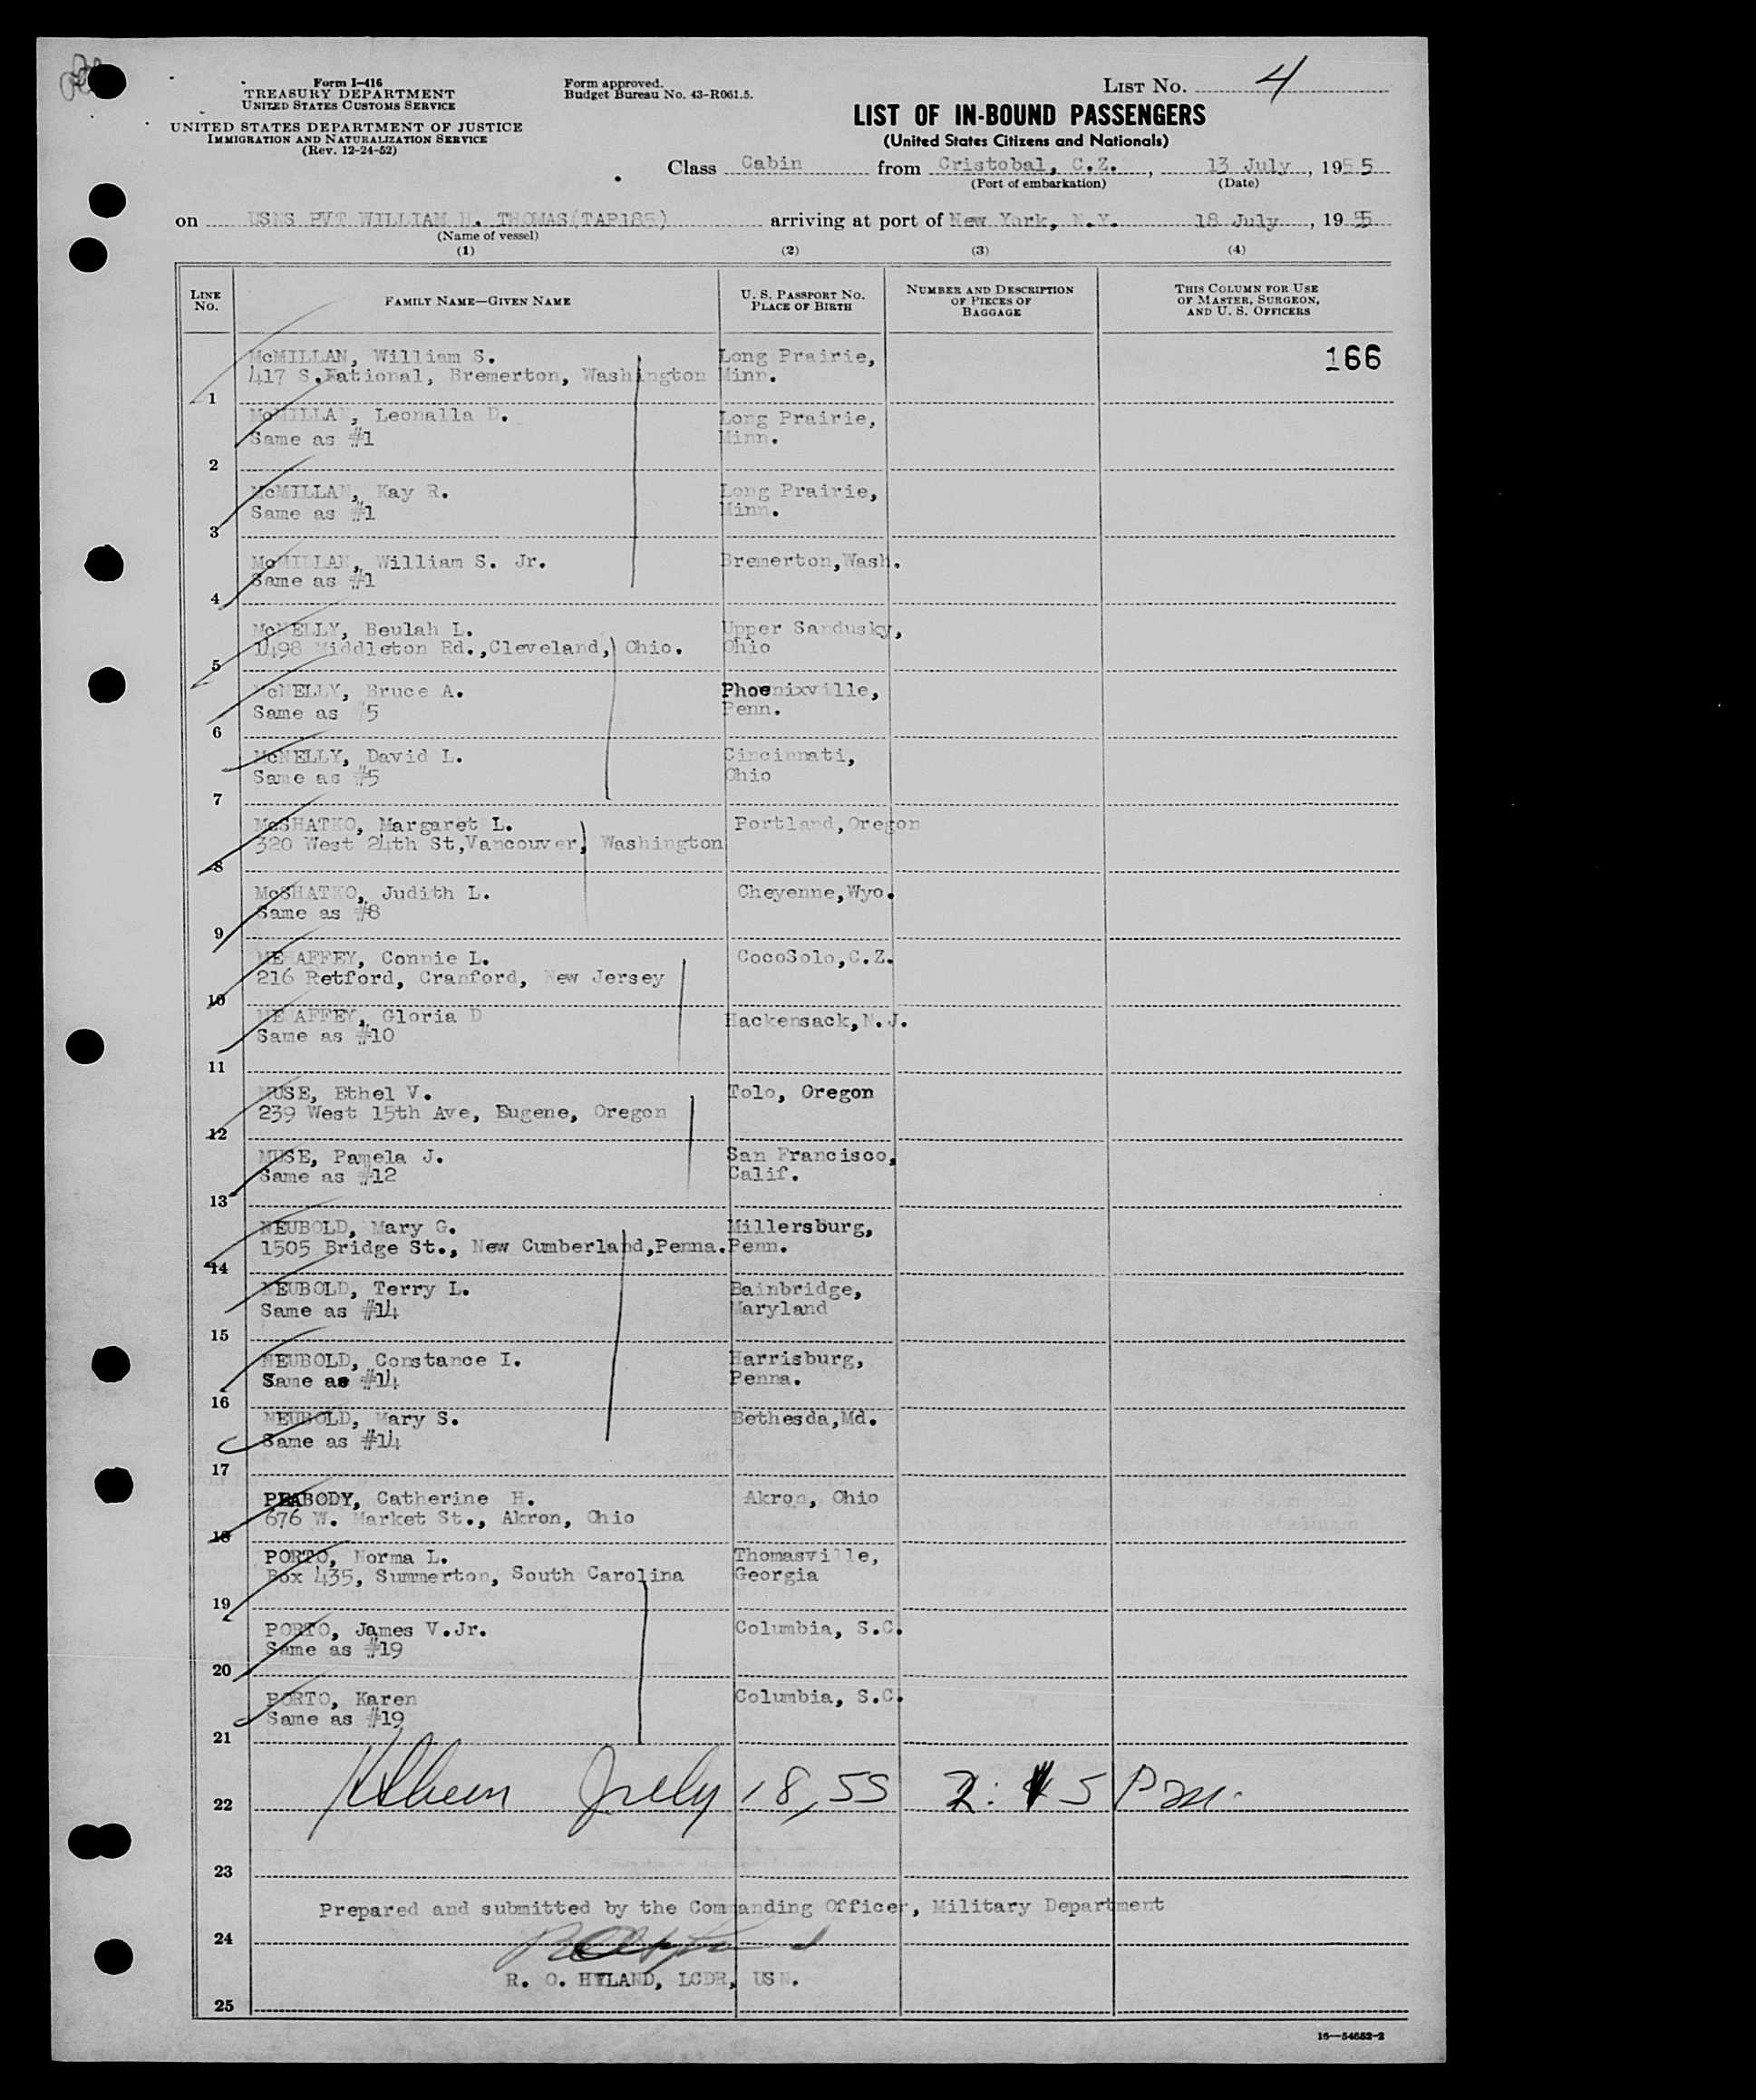 Form I-416
TREASURY DEPARTMENT
UNITED STATES CUSTOMS SERVICE
UNITED STATES DEPARTMENT OF JUSTICE
IMMIGRATION AND NATURALIZATION SERVICE
(Rev. 12-24-52)
Form approved.
Budget Bureau No. 43-R061.5.
LIST NO. 4
LIST OF IN-BOUND PASSENGERS
(United States Citizens and Nationals)
Class Cabin from Cristobal, C.Z., 13 July, 1955
(Port of embarkation) (Date)
on USNS PVT WILLIAM H. THOMAS(TAP185) arriving at port of New York, N.Y. 18 July, 1955
(Name of vessel)
(1) (2) (3) (4)
LINE NO. FAMILY NAME—GIVEN NAME U. S. PASSPORT NO. PLACE OF BIRTH NUMBER AND DESCRIPTION OF PIECES OF BAGGAGE THIS COLUMN FOR USE OF MASTER, SURGEON, AND U. S. OFFICERS
McMILLAN, William S. Long Prairie, 166
417 S.National, Bremerton, Washington Minn.
1
McMILLAN, Leonalla D. Long Prairie,
Same as #1 Minn.
2
McMILLAN, Kay R. Long Prairie,
Same as #1 Minn.
3
McMILLAN, William S. Jr. Bremerton,Wash.
Same as #1
4
McNELLY, Beulah L. Upper Sandusky,
1498 Middleton Rd.,Cleveland, Ohio. Ohio
5
McNELLY, Bruce A. Phoenixville,
Same as #5 Penn.
6
McNELLY, David L. Cincinnati,
Same as #5 Ohio
7
McSHATKO, Margaret L. Portland,Oregon
320 West 24th St,Vancouver, Washington
8
McSHATKO, Judith L. Cheyenne,Wyo.
Same as #8
9
MEHAFFEY, Connie L. CocoSolo,C.Z.
216 Retford, Cranford, New Jersey
10
MEHAFFEY, Gloria D Hackensack,N.J.
Same as #10
11
MUSE, Ethel V. Tolo, Oregon
239 West 15th Ave, Eugene, Oregon
12
MUSE, Pamela J. San Francisco,
Same as #12 Calif.
13
NEUBOLD, Mary G. Millersburg,
1505 Bridge St., New Cumberland,Penna. Penn.
14
NEUBOLD, Terry L. Bainbridge,
Same as #14 Maryland
15
NEUBOLD, Constance I. Harrisburg,
Same as #14 Penna.
16
NEUBOLD, Mary S. Bethesda,Md.
Same as #14
17
PEABODY, Catherine H. Akron, Ohio
676 W. Market St., Akron, Ohio
18
PORTO, Norma L. Thomasville,
Box 435, Summerton, South Carolina Georgia
19
PORTO, James V.Jr. Columbia, S.C.
Same as #19
20
PORTO, Karen Columbia, S.C.
Same as #19
21
July 18, 55 2: 5 Pm.
22
23
Prepared and submitted by the Commanding Officer, Military Department
24
R. O. HYLAND, LCDR, USN.
25
16—54652-2